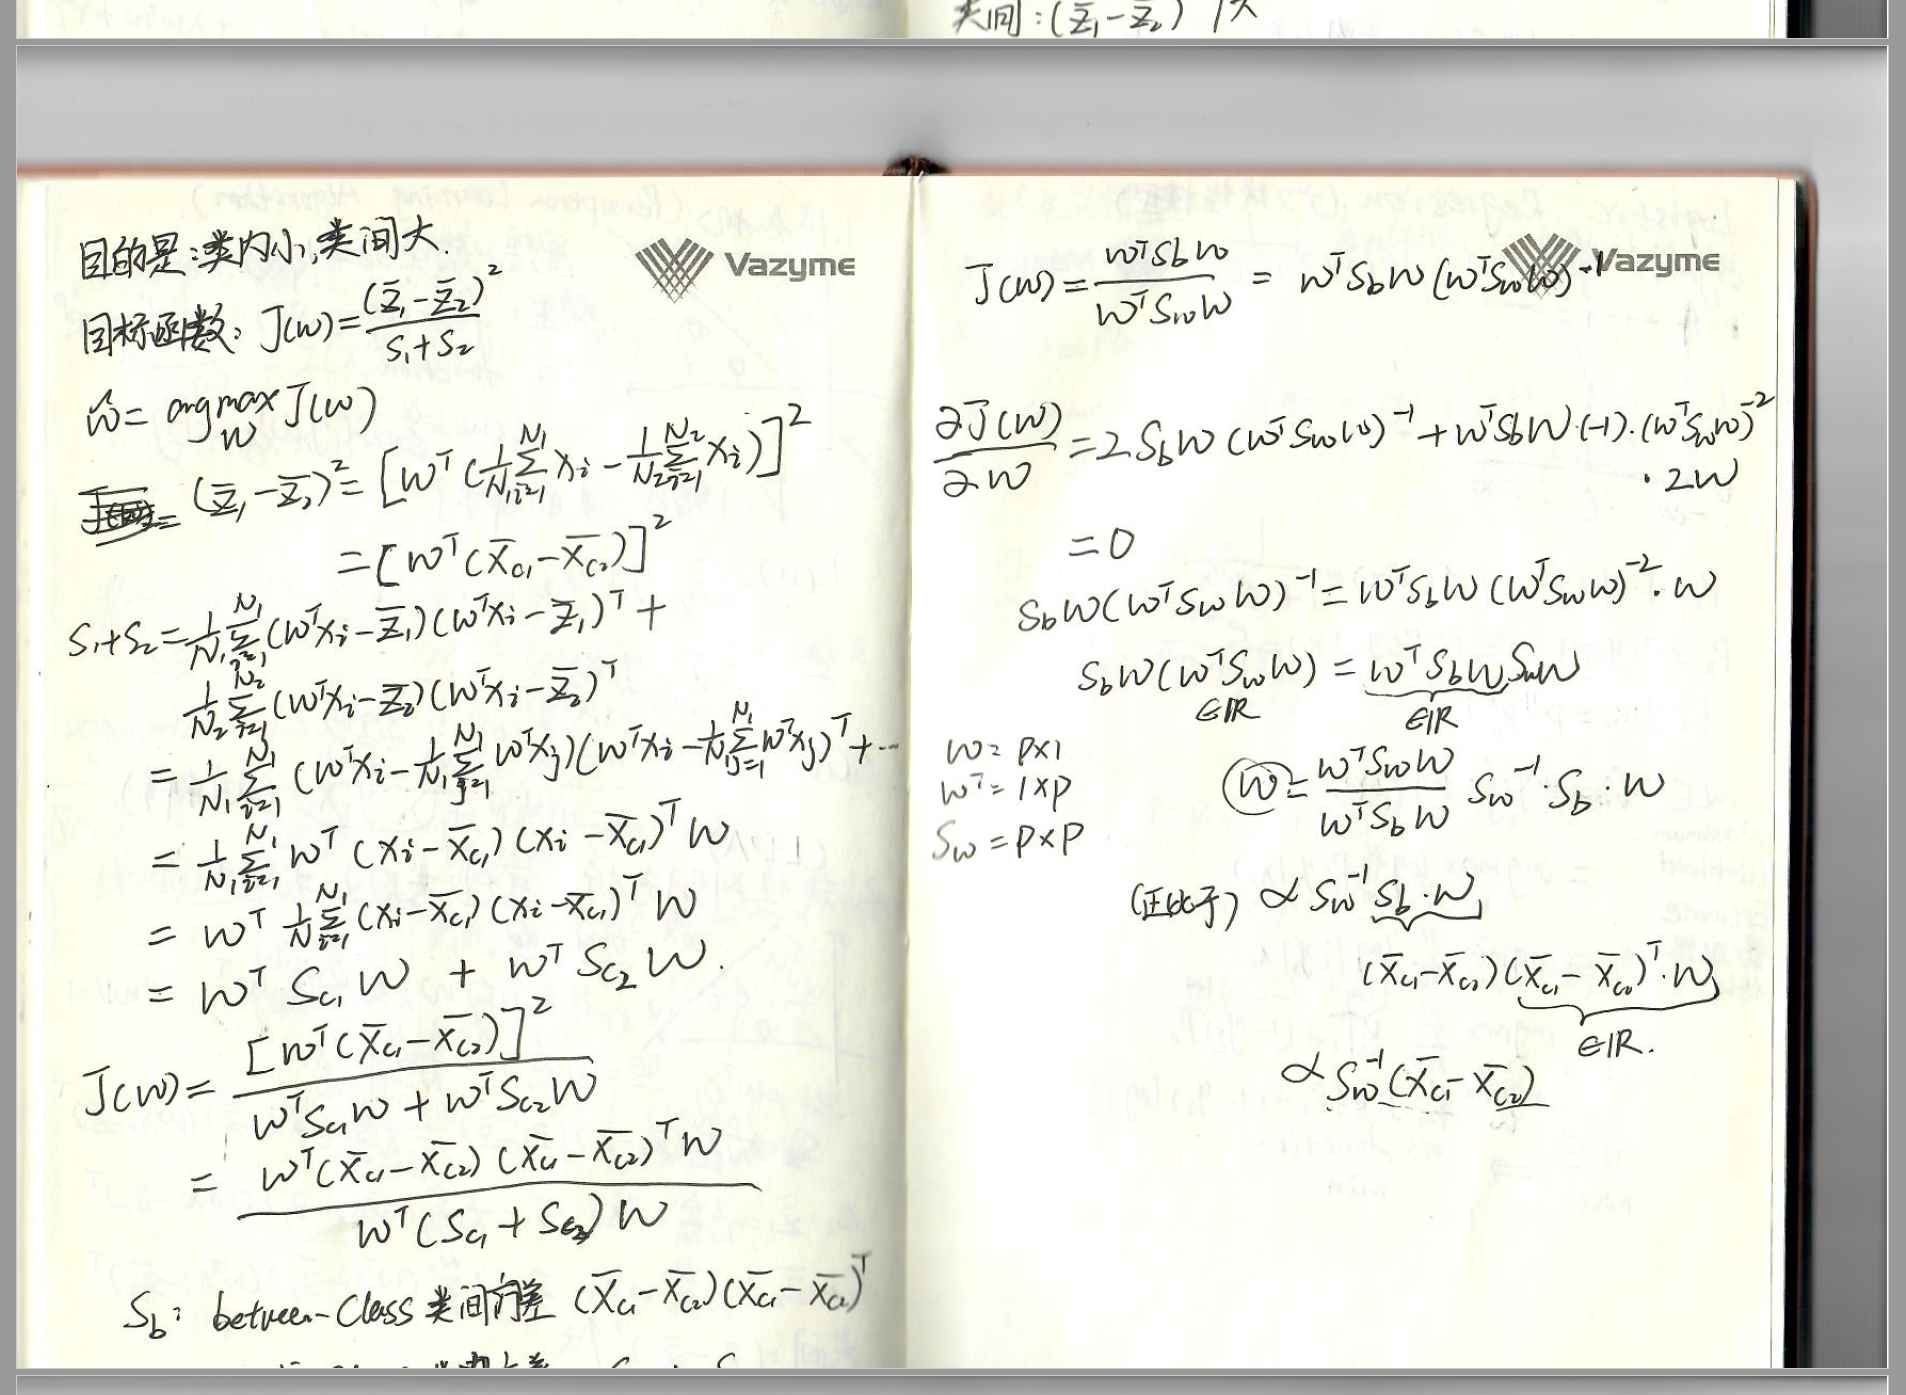 类间:(z̄₁-z̄₂) 大
目的是:类内小,类间大.
Vazyme
目标函数: J(w)=(z̄₁-z̄₂)²/(S₁+S₂)
ŵ= argmax_w J(w)
(z̄₁-z̄₂)²=[wᵀ(1/N₁ Σ_{i=1}^{N₁} xᵢ - 1/N₂ Σ_{i=1}^{N₂} xᵢ)]²
=[wᵀ(x̄_{c₁}-x̄_{c₂})]²
S₁+S₂=1/N₁ Σ_{i=1}^{N₁}(wᵀxᵢ-z̄₁)(wᵀxᵢ-z̄₁)ᵀ+
1/N₂ Σ_{i=1}^{N₂}(wᵀxᵢ-z̄₂)(wᵀxᵢ-z̄₂)ᵀ
=1/N₁ Σ_{i=1}^{N₁}(wᵀxᵢ-1/N₁ Σ_{j=1}^{N₁} wᵀxⱼ)(wᵀxᵢ-1/N₁ Σ_{j=1}^{N₁} wᵀxⱼ)ᵀ+...
=1/N₁ Σ_{i=1}^{N₁} wᵀ(xᵢ-x̄_{c₁})(xᵢ-x̄_{c₁})ᵀw
=wᵀ 1/N₁ Σ_{i=1}^{N₁}(xᵢ-x̄_{c₁})(xᵢ-x̄_{c₁})ᵀ w
=wᵀ S_{c₁} w + wᵀ S_{c₂} w.
J(w)=[wᵀ(x̄_{c₁}-x̄_{c₂})]²/(wᵀS_{c₁}w+wᵀS_{c₂}w)
=wᵀ(x̄_{c₁}-x̄_{c₂})(x̄_{c₁}-x̄_{c₂})ᵀw/(wᵀ(S_{c₁}+S_{c₂})w)
S_b: between-Class 类间方差 (x̄_{c₁}-x̄_{c₂})(x̄_{c₁}-x̄_{c₂})ᵀ
Vazyme
J(w)=wᵀS_b w/(wᵀS_w w) = wᵀS_b w(wᵀS_w w)⁻¹
∂J(w)/∂w=2S_b w(wᵀS_w w)⁻¹+wᵀS_b w·(-1)·(wᵀS_w w)⁻²
·2w
=0
S_b w(wᵀS_w w)⁻¹=wᵀS_b w(wᵀS_w w)⁻²·w
S_b w(wᵀS_w w)=wᵀS_b w S_w w
∈ℝ ∈ℝ
w=p×1
wᵀ=1×p
S_w=p×p
w=(wᵀS_w w)/(wᵀS_b w) S_w⁻¹·S_b·w
(正比于) ∝ S_w⁻¹S_b·w
(x̄_{c₁}-x̄_{c₂})(x̄_{c₁}-x̄_{c₂})ᵀ·w
∈ℝ.
∝ S_w⁻¹(x̄_{c₁}-x̄_{c₂})